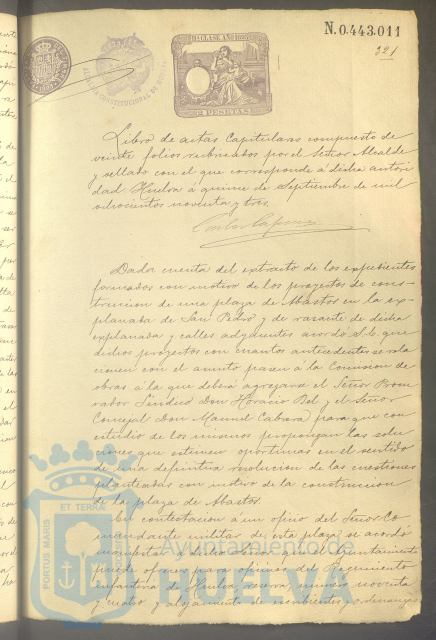 N.0.443.011
321
11ª CLASE AÑO 1893
2 PESETAS
Libro de actas Capitulares compuesto de
veinte folios rubricados por el Señor Alcalde
y sellado con el que corresponde á dicha autori
dad Huelva á quince de Septiembre de mil
ochocientos noventa y tres.
Dada cuenta del extracto de los expedientes
formados con motivo de los proyectos de cons-
truccion de una plaza de Abastos en la ex-
planada de San Pedro y de rasante de dicha
explanada y calles adyacentes acordó S.E. que
dichos proyectos con cuantos antecedentes se rela
cionen con el asunto pasen á la Comision de
obras á la que deberá agregarse el Señor Procu
rador Síndico Don Horacio Bel y el Señor
Concejal Don Manuel Cabrera para que con
estudio de los mismos propongan las solu
ciones que estimen oportunas en el sentido
de una definitiva resolucion de las cuestiones
planteadas con motivo de la construccion
de la plaza de Abastos.
En contestacion á un oficio del Señor Co
mandante militar de esta plaza se acordó
manifestar á dicho Señor que el Ayuntamiento
puede ofrecer para oficinas del Regimiento
infantería de Huelva reserva, número noventa
y cuatro y alojamiento de escribientes y ordenanzas
PORTUS MARIS
ET TERRAE
Ayuntamiento de
HUELVA